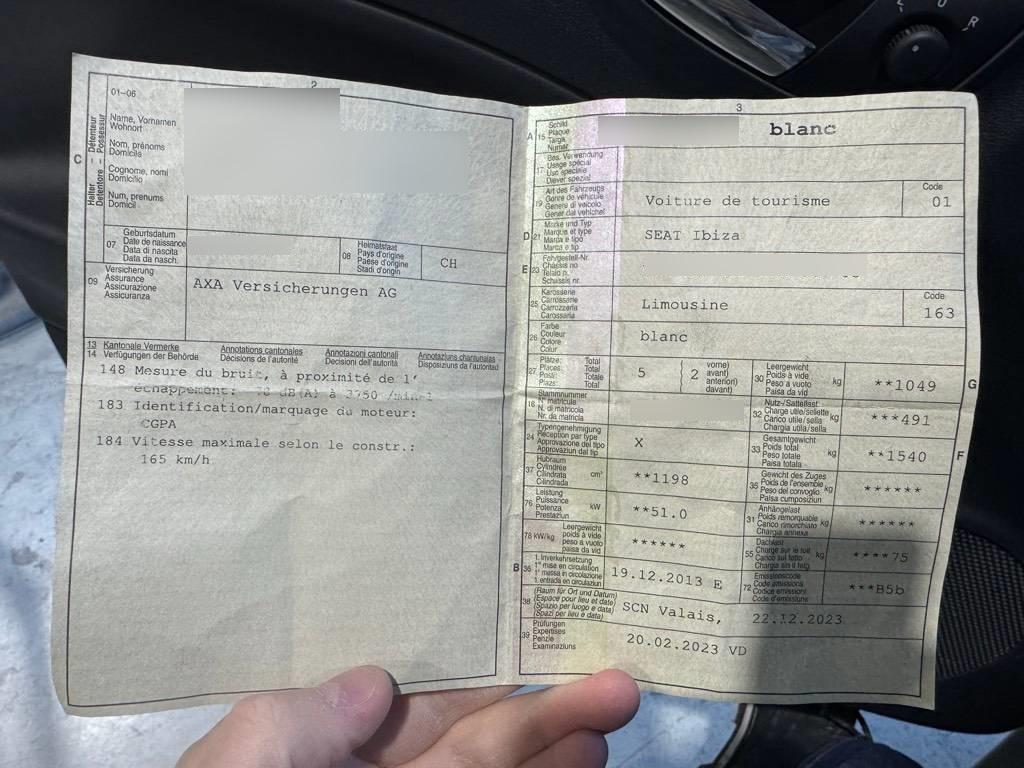 2
01-06
Name, Vornamen
Wohnort
Nom, prénoms
Domicile
Cognome, nomi
Domicilio
Num, prenums
Domicil
C
Halter – Détenteur
Detentore – Possessur
07
Geburtsdatum
Date de naissance
Data di nascita
Data da nasch.
08
Heimatstaat
Pays d'origine
Paese d'origine
Stadi d'origin
CH
09
Versicherung
Assurance
Assicurazione
Assicuranza
AXA Versicherungen AG
13 Kantonale Vermerke Annotations cantonales Annotazioni cantonali Annotaziuns chantunalas
14 Verfügungen der Behörde Décisions de l'autorité Decisioni dell'autorità Disposiziuns da l'autoritad
148 Mesure du bruit, à proximité de l'
échappement: dB(A) à 3750 /min
183 Identification/marquage du moteur:
CGPA
184 Vitesse maximale selon le constr.:
165 km/h
3
A 15
Schild
Plaque
Targa
Numer
blanc
17
Bes. Verwendung
Usage spécial
Uso speciale
Diever spezial
19
Art des Fahrzeugs
Genre de véhicule
Genere di veicolo
Gener dal vehichel
Voiture de tourisme
Code
01
D 21
Marke und Typ
Marque et type
Marca e tipo
Marca e tip
SEAT Ibiza
E 23
Fahrgestell-Nr.
Châssis no
Telaio n.
Schassis nr.
25
Karosserie
Carrosserie
Carrozzeria
Carossaria
Limousine
Code
163
26
Farbe
Couleur
Colore
Colur
blanc
27
Plätze: Total
Places: Total
Posti: Totale
Plazs: Total
5
2
vorne)
avant)
anteriori)
davant)
30
Leergewicht
Poids à vide
Peso a vuoto
Paisa da vid
kg
**1049
G
18
Stammnummer
N° matricule
N. di matricola
Nr. da matricla
32
Nutz-/Sattellast
Charge utile/sellette
Carico utile/sella
Chargia utila/sella
kg
***491
24
Typengenehmigung
Réception par type
Approvazione del tipo
Approvaziun dal tip
X
33
Gesamtgewicht
Poids total
Peso totale
Paisa totala
kg
**1540
F
37
Hubraum
Cylindrée
Cilindrata
Cilindrada
cm³
**1198
35
Gewicht des Zuges
Poids de l'ensemble
Peso del convoglio
Paisa cumposiziun
kg
******
76
Leistung
Puissance
Potenza
Prestaziun
kW
**51.0
31
Anhängelast
Poids remorquable
Carico rimorchiato
Chargia annexa
kg
******
78 kW/kg
Leergewicht
poids à vide
peso a vuoto
paisa da vid
******
55
Dachlast
Charge sur le toit
Carico sul tetto
Chargia sin il tetg
kg
****75
B 36
1. Inverkehrsetzung
1re mise en circulation
1a messa in circolazione
1. entrada en circulaziun
19.12.2013 E
72
Emissionscode
Code émissions
Codice emissioni
Code d'emissiuns
***B5b
38
(Raum für Ort und Datum)
(Espace pour lieu et date)
(Spazio per luogo e data)
(Spazi per lieu e data)
SCN Valais, 22.12.2023
39
Prüfungen
Expertises
Perizie
Examinaziuns
20.02.2023 VD